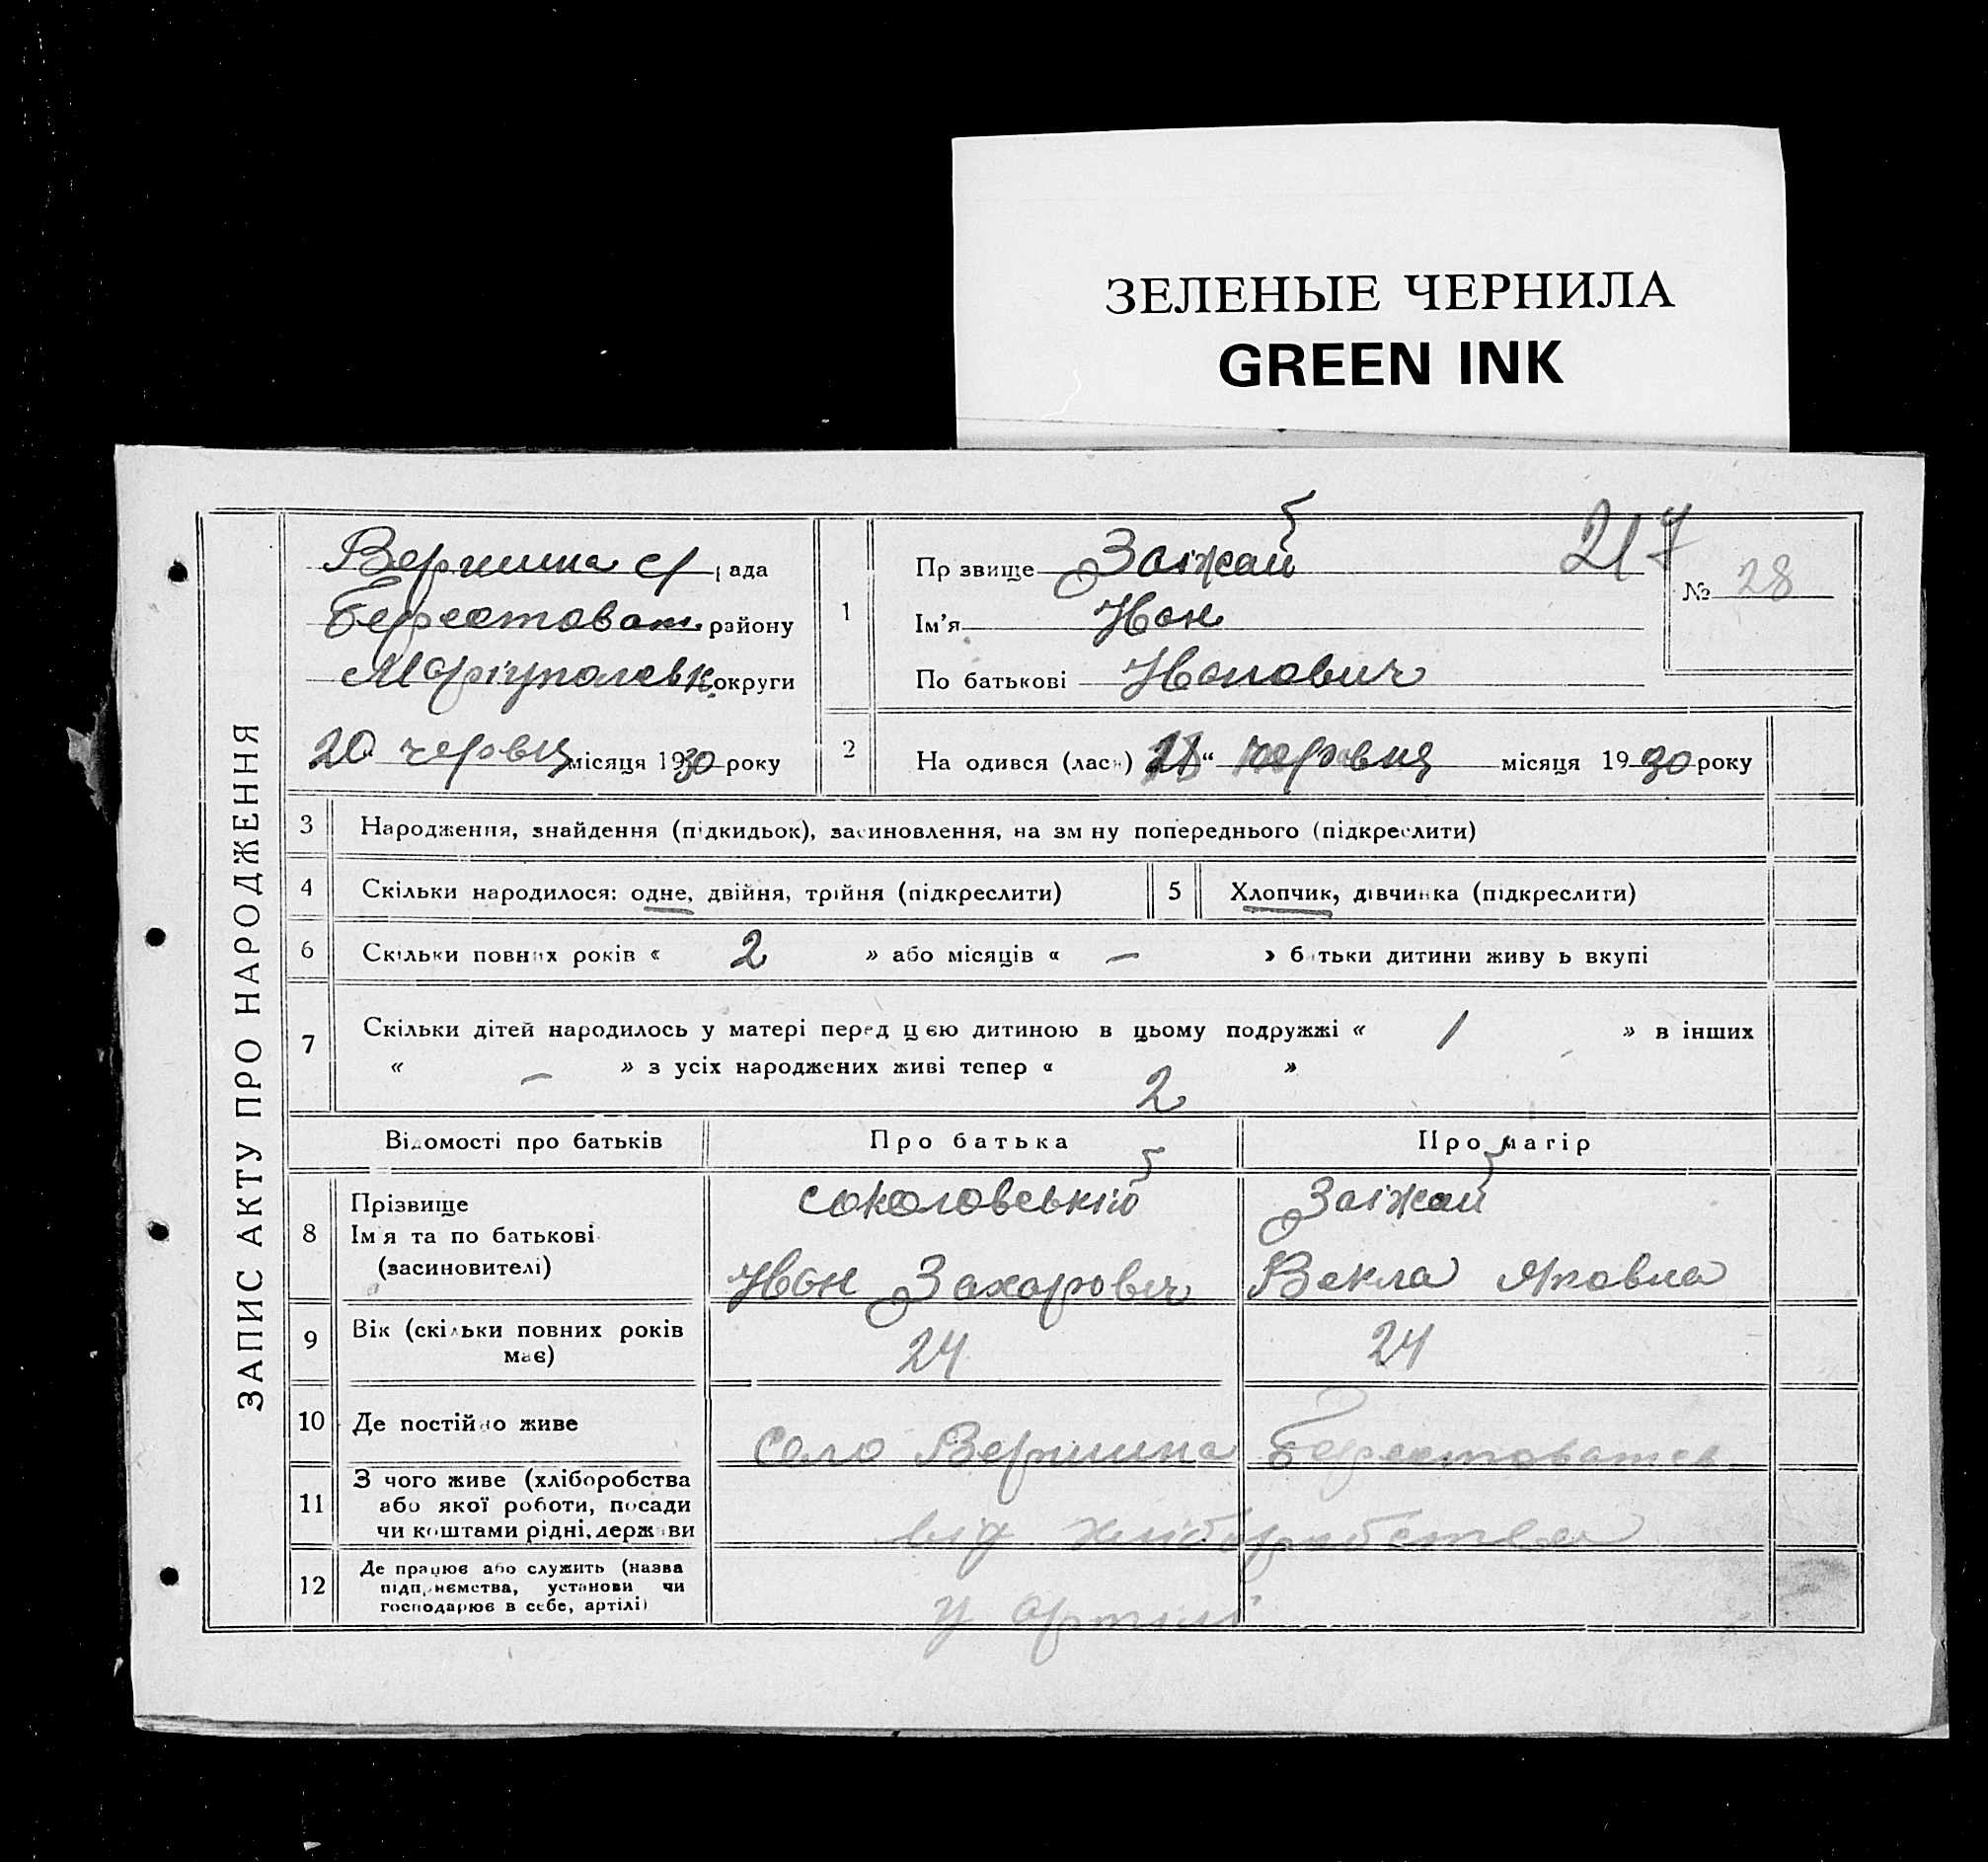 ЗЕЛЕНЫЕ ЧЕРНИЛА
GREEN INK
ЗАПИС АКТУ ПРО НАРОДЖЕННЯ
Вершина с/ рада
Берестоват. району
Маріупольськ. округи
20 червня місяця 1930 року
217
№ 28
1
Прзвище Заїжай
Ім'я Іван
По батькові Іванович
2
На одився (лась) "червня місяця 1930 року
3 Народження, знайдення (підкидьок), засиновлення, на зм ну попереднього (підкреслити)
4 Скільки народилося: одне, двійня, трійня (підкреслити) 5 Хлопчик, дівчинка (підкреслити)
6 Скільки повних років « 2 » або місяців « — » батьки дитини живу ь вкупі
7 Скільки дітей народилось у матері перед цією дитиною в цьому подружжі « 1 » в інших
« — » з усіх народжених живі тепер « 2 »
Відомості про батьків Про батька Про матір
8 Прізвище
Ім'я та по батькові
(засиновителі)
Соколовський Заїжай
Іван Захарович Векла Яковна
9 Вік (скільки повних років
має) 24 24
10 Де постійно живе Село Вершина Берестоватск
11 З чого живе (хліборобства
або якої роботи, посади
чи коштами рідні, держави
від хліборобства
12 Де працює або служить (назва
підприємства, установи чи
господарює в себе, артілі)
у артілі